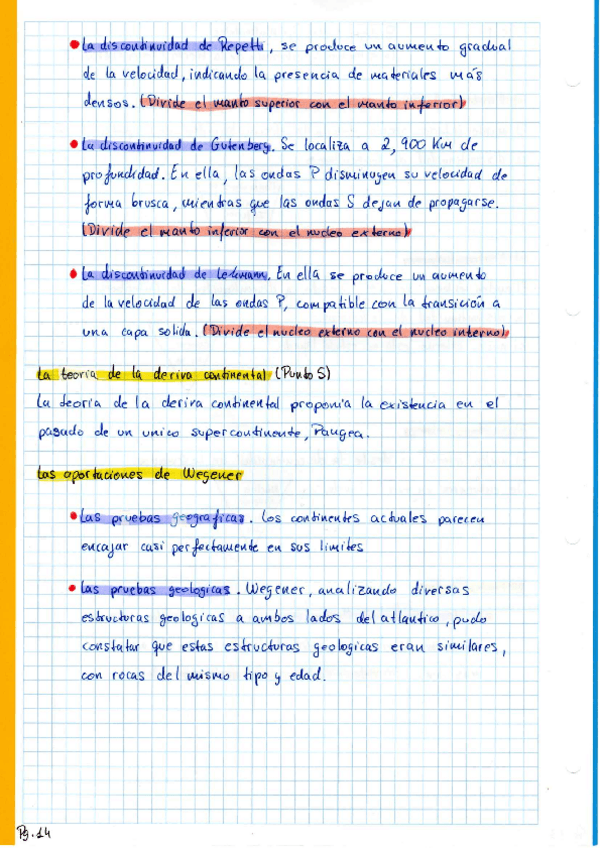 La discontinuidad de Repetti, se produce un aumento gradual
de la velocidad, indicando la presencia de materiales más
densos. (Divide el manto superior con el manto inferior)
La discontinuidad de Gutenberg. Se localiza a 2,900 Km de
profundidad. En ella, las ondas P disminuyen su velocidad de
forma brusca, mientras que las ondas S dejan de propagarse.
(Divide el manto inferior con el nucleo externo)
La discontinuidad de Lehmann. En ella se produce un aumento
de la velocidad de las ondas P, compatible con la transición a
una capa solida. (Divide el nucleo externo con el nucleo interno)
La teoria de la deriva continental (Punto 5)
La teoria de la deriva continental proponia la existencia en el
pasado de un unico supercontinente, Pangea.
Las aportaciones de Wegener
Las pruebas geograficas. Los continentes actuales parecen
encajar casi perfectamente en sus limites
Las pruebas geologicas. Wegener, analizando diversas
estructuras geologicas a ambos lados del atlantico, pudo
constatar que estas estructuras geologicas eran similares,
con rocas del mismo tipo y edad.
Pg. 14